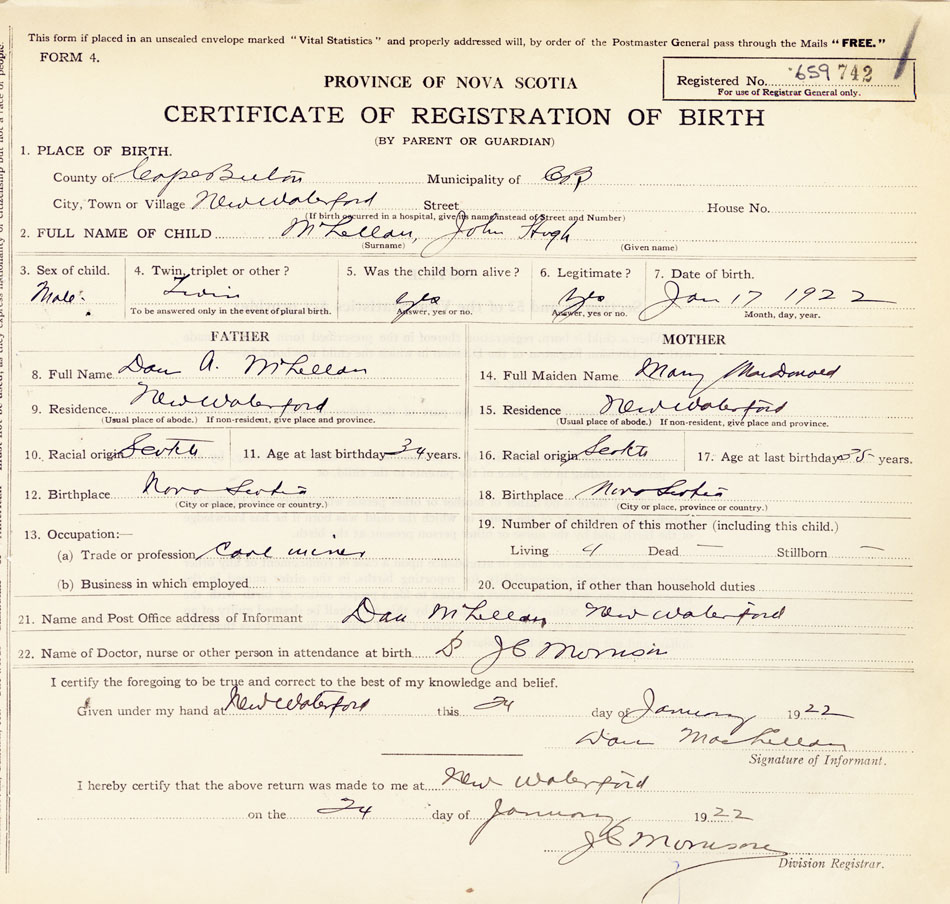 This form if placed in an unsealed envelope marked "Vital Statistics" and properly addressed will, by order of the Postmaster General pass through the Mails "FREE."
FORM 4.
PROVINCE OF NOVA SCOTIA
Registered No. 659742
For use of Registrar General only.
CERTIFICATE OF REGISTRATION OF BIRTH
(BY PARENT OR GUARDIAN)
1. PLACE OF BIRTH.
County of Cape Breton Municipality of CB
City, Town or Village New Waterford Street House No.
(If birth occurred in a hospital, give its name instead of Street and Number)
2. FULL NAME OF CHILD McLellan, John Hugh
(Surname) (Given name)
3. Sex of child. 4. Twin, triplet or other? 5. Was the child born alive? 6. Legitimate? 7. Date of birth.
Male. Twin yes yes Jan 17 1922
To be answered only in the event of plural birth. Answer, yes or no. Answer, yes or no. Month, day, year.
FATHER MOTHER
8. Full Name Dan A. McLellan 14. Full Maiden Name Mary MacDonald
9. Residence New Waterford 15. Residence New Waterford
(Usual place of abode.) If non-resident, give place and province. (Usual place of abode.) If non-resident, give place and province.
10. Racial origin Scotch 11. Age at last birthday 34 years. 16. Racial origin Scotch 17. Age at last birthday 35 years.
12. Birthplace Nova Scotia 18. Birthplace Nova Scotia
(City or place, province or country.) (City or place, province or country.)
13. Occupation:— 19. Number of children of this mother (including this child.)
(a) Trade or profession Coal miner Living 4 Dead — Stillborn —
(b) Business in which employed 20. Occupation, if other than household duties
21. Name and Post Office address of Informant Dan McLellan New Waterford
22. Name of Doctor, nurse or other person in attendance at birth J C Morrison
I certify the foregoing to be true and correct to the best of my knowledge and belief.
Given under my hand at New Waterford this 24 day of January 1922
Dan MacLellan
Signature of Informant.
I hereby certify that the above return was made to me at New Waterford
on the 24 day of January 1922
J C Morrison
Division Registrar.